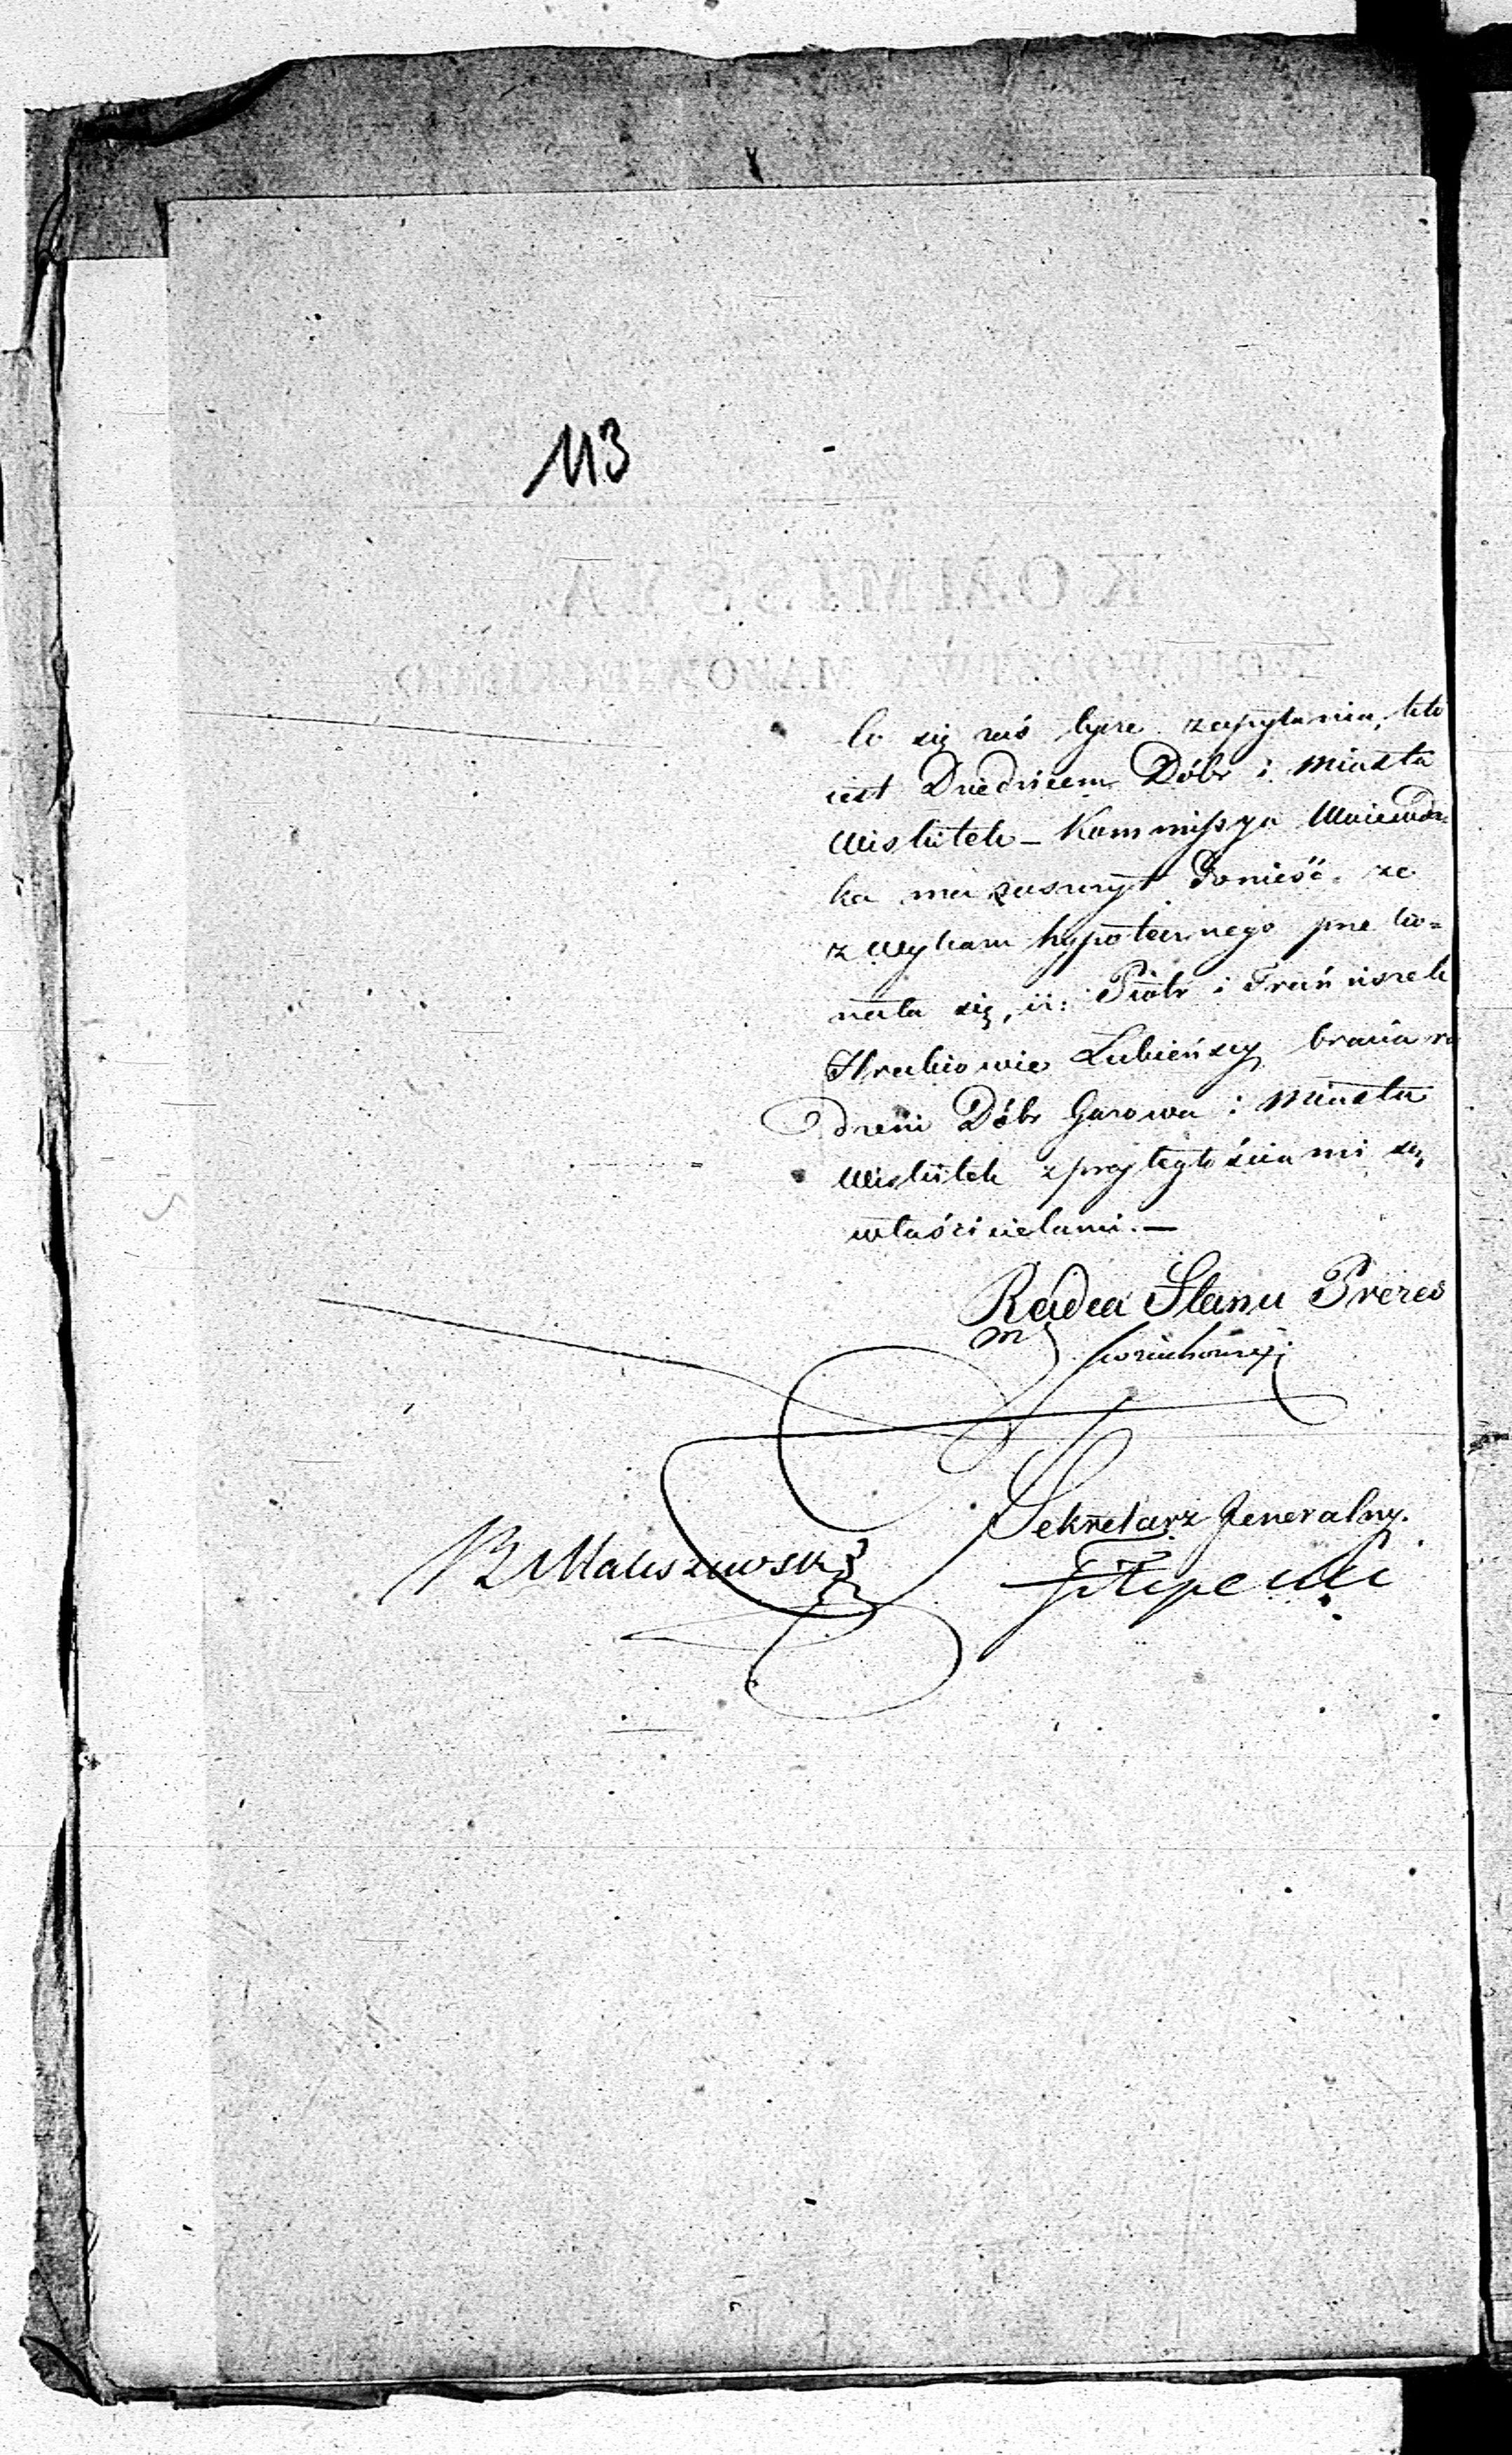 113
Co się zaś tycze zapytania, kto
iest Dziedzicem Dóbr i Miasta
Wiskitek – Kommissya Woiewódz=
ka ma zaszczyt donieść, że
z Wykazu hypotecznego przeko=
nała się, iż: Piotr i Franciszek
Hrabiowie Łubieńscy bracia ro
dzeni Dóbr Guzowa i Miasta
Wiskitek z przyległościami są
właścicielami. —
Radca Stanu Prezes
Sekretarz Jeneralny.
Filipecki